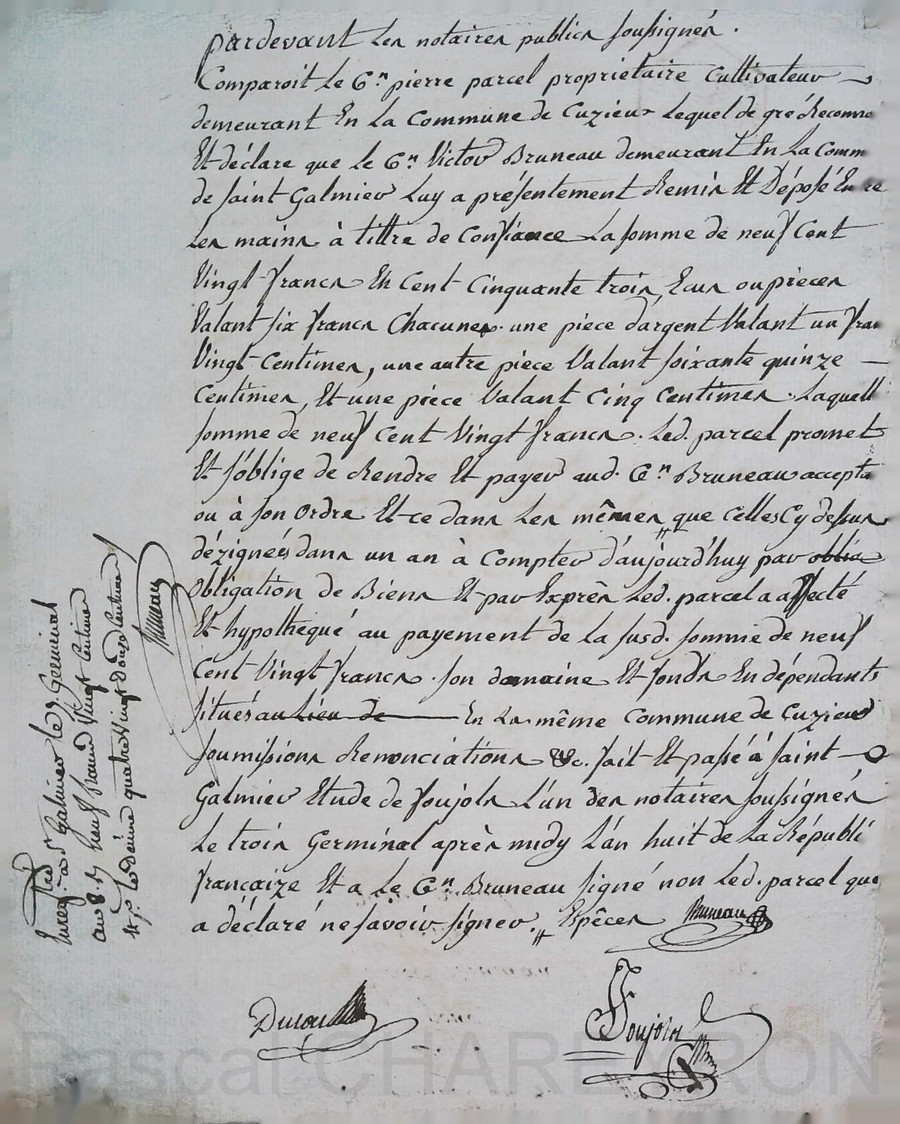 pardevant Les notaires publics soussignés.
Comparoit Le Cen. pierre parcel proprietaire Cultivateur
demeurant En La Commune de Cuzieu Lequel de gré Reconnu
Et déclare que le Cen. Victor Bruneau demeurant En La Comm
de saint Galmier Luy a présentement Remis Et Déposé Entre
Les mains à tittre de Confiance La somme de neuf Cent
Vingt francs En Cent Cinquante trois Ecus ou pieces
Valant six francs Chacunes. une piece d'argent Valant un fran
Vingt Centimes, une autre piece Valant soixante quinze
Centimes, Et une piece Valant Cinq Centimes. Laquell
somme de neuf Cent Vingt francs. Led. parcel promet
Et s'oblige de Rendre Et payer aud. Cen. Bruneau accepta
ou à son ordre Et ce dans Les mêmes que Celles Cy dessus
dézignées dans un an à Compter d'aujourd'huy par oblig
Obligation de Biens Et par Exprès Led. parcel a affecté
Et hypothéqué au payement de la susd. somme de neuf
Cent Vingt francs. son domaine Et fonds En dépendants
situés au Lieu de En La même Commune de Cuzieu
soumissions Renonciations &c. fait Et passé à saint
Galmier Etude de soujols L'un des notaires soussignés
Le trois Germinal après midy L'an huit de La Républi
françaize Et a Le Cen. Bruneau signé non Led. parcel que
a déclaré ne savoir signer. Espèces Bruneau
Soujols
Bruneau
a St Galmier le Germinal
an 8. neuf francs Vingt Centimes
quatre Vingt Douze Centimes